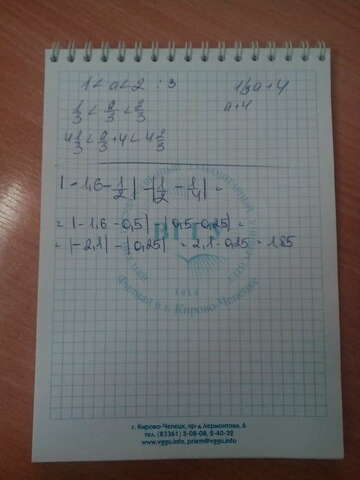 1 < a < 2 : 3
1/3 a + 4
1/3 < a/3 < 2/3
a + 4
4 1/3 < a/3 + 4 < 4 2/3
|-1,6 - 1/2| - |1/2 - 1/4| =
= |-1,6 - 0,5| - |0,5 - 0,25| =
= |-2,1| - |0,25| = 2,1 - 0,25 = 1,85
ВГГУ
1914
филиал в г. Кирово-Чепецке
г. Кирово-Чепецк, пр-д Лермонтова, 5
тел. (83361) 5-08-08, 5-40-32
www.vggu.info, priem@vggu.info